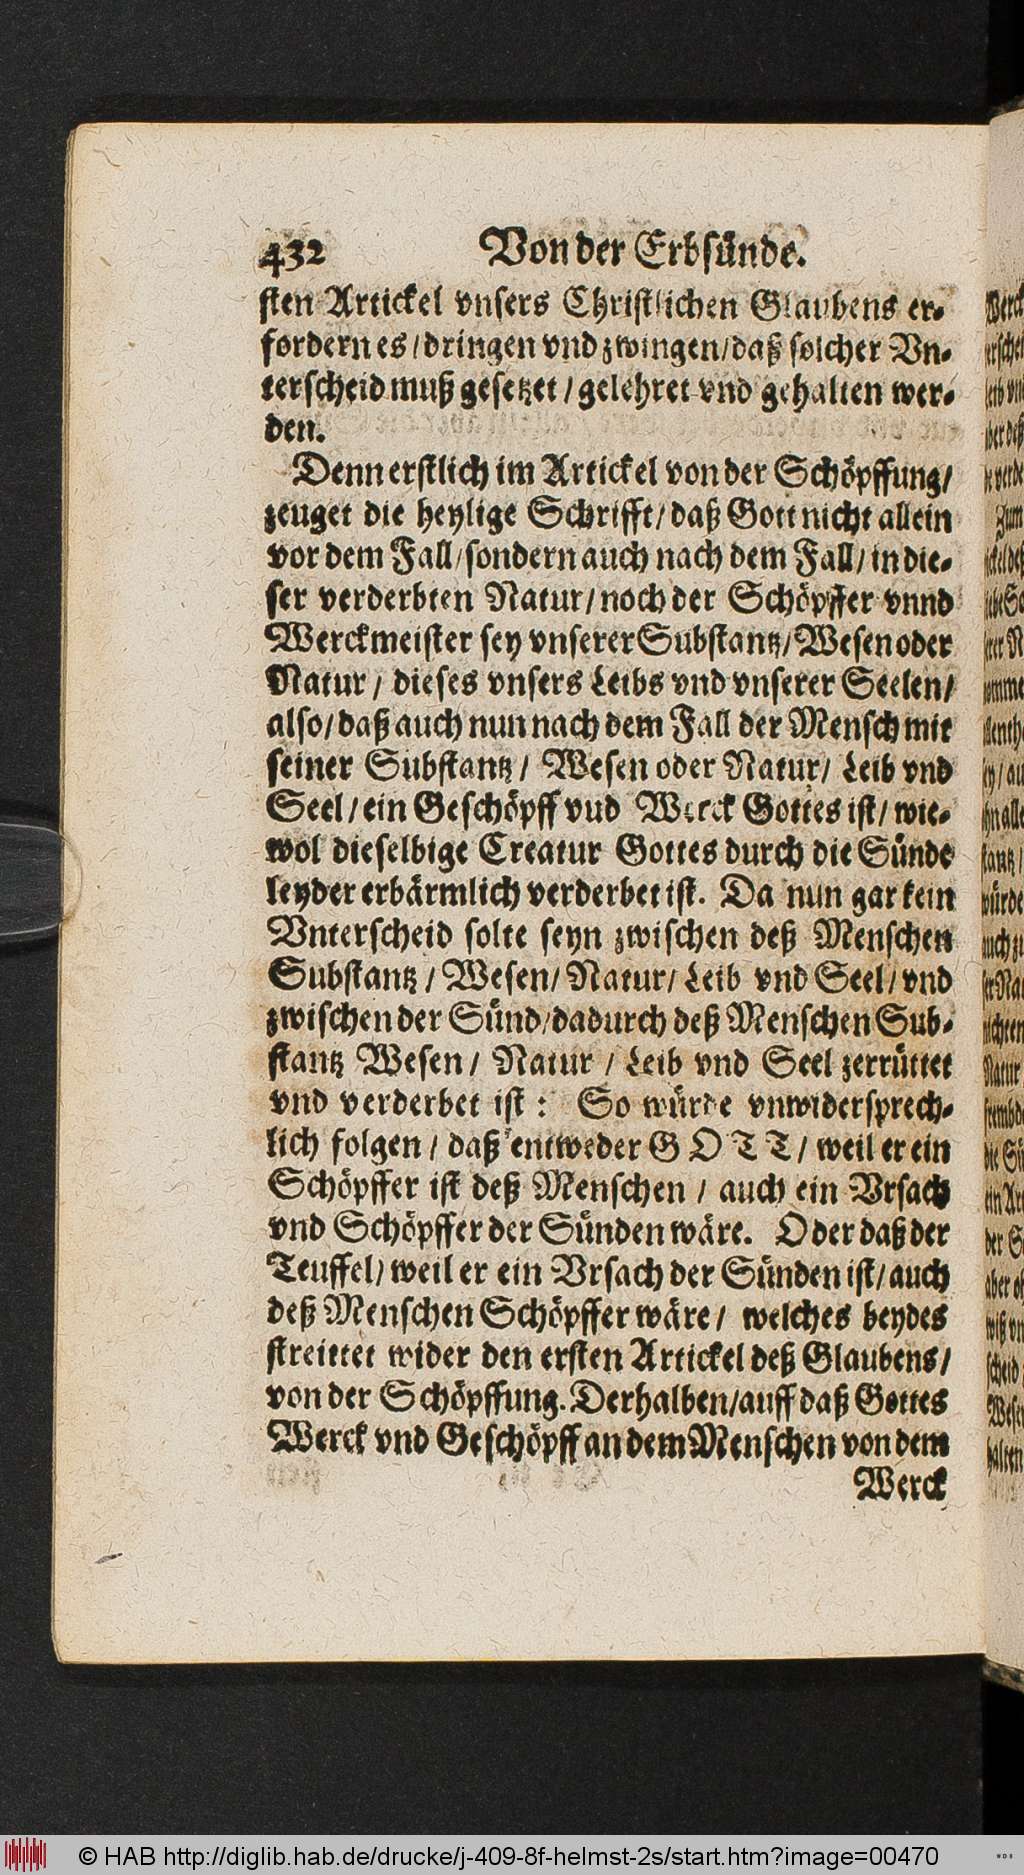 432 Von der Erbsünde.
sten Artickel vnsers Christlichen Glaubens er-
fordern es / dringen vnd zwingen / daß solcher Vn-
terscheid muß gesetzet / gelehret vnd gehalten wer-
den.
Denn erstlich im Artickel von der Schöpffung /
zeuget die heylige Schrifft / daß Gott nicht allein
vor dem Fall / sondern auch nach dem Fall / in die-
ser verderbten Natur / noch der Schöpffer vnnd
Werckmeister sey vnserer Substantz / Wesen oder
Natur / dieses vnsers Leibs vnd vnserer Seelen /
also / daß auch nun nach dem Fall der Mensch mit
seiner Substantz / Wesen oder Natur / Leib vnd
Seel / ein Geschöpff vud Werck Gottes ist / wie-
wol dieselbige Creatur Gottes durch die Sünde
leyder erbärmlich verderbet ist. Da nun gar kein
Vnterscheid solte seyn zwischen deß Menschen
Substantz / Wesen / Natur / Leib vnd Seel / vnd
zwischen der Sünd / dadurch deß Menschen Sub-
stantz Wesen / Natur / Leib vnd Seel zerrüttet
vnd verderbet ist : So würde vnwidersprech-
lich folgen / daß entweder GOTT / weil er ein
Schöpffer ist deß Menschen / auch ein Vrsach
vnd Schöpffer der Sünden wäre. Oder daß der
Teuffel / weil er ein Vrsach der Sünden ist / auch
deß Menschen Schöpffer wäre / welches beydes
streittet wider den ersten Artickel deß Glaubens /
von der Schöpffung. Derhalben / auff daß Gottes
Werck vnd Geschöpff an dem Menschen von dem
Werck
© HAB http://diglib.hab.de/drucke/j-409-8f-helmst-2s/start.htm?image=00470